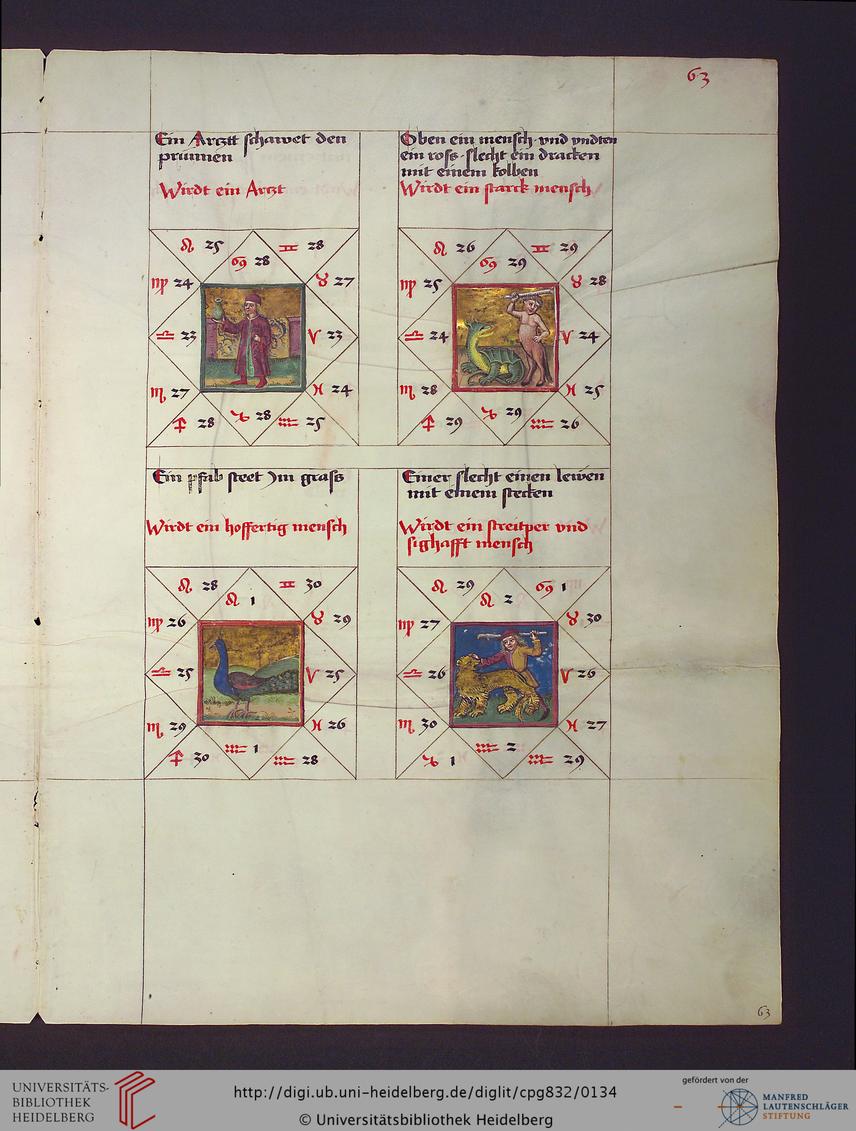 63
Ein Arcztt schawet den
prunnen
Wirdt ein Arczt
♌ 25 ♊ 28
♋ 28
♍ 24 ♉ 27
♎ 23 ♈ 23
♏ 27 ♓ 24
♐ 28 ♑ 28 ♒ 25
Oben ein mensch vnd vndten
ein ross slecht ein dracken
mit einem kolben
Wirdt ein starck mensch
♌ 26 ♊ 29
♋ 29
♍ 25 ♉ 28
♎ 24 ♈ 24
♏ 28 ♓ 25
♐ 29 ♑ 29 ♒ 26
Ein pfab steet Jm grass
Wirdt ein hoffertig mensch
♌ 28 ♊ 30
♌ 1
♍ 26 ♉ 29
♎ 25 ♈ 25
♏ 29 ♓ 26
♐ 30 ♒ 1 ♒ 28
Einer slecht einen lewen
mit einem stecken
Wirdt ein streitper vnd
sighafft mensch
♌ 29 ♋ 1
♌ 2
♍ 27 ♉ 30
♎ 26 ♈ 26
♏ 30 ♓ 27
♑ 1 ♒ 2 ♒ 29
63
UNIVERSITÄTS-
BIBLIOTHEK
HEIDELBERG
http://digi.ub.uni-heidelberg.de/diglit/cpg832/0134
© Universitätsbibliothek Heidelberg
gefördert von der
MANFRED
LAUTENSCHLÄGER
STIFTUNG